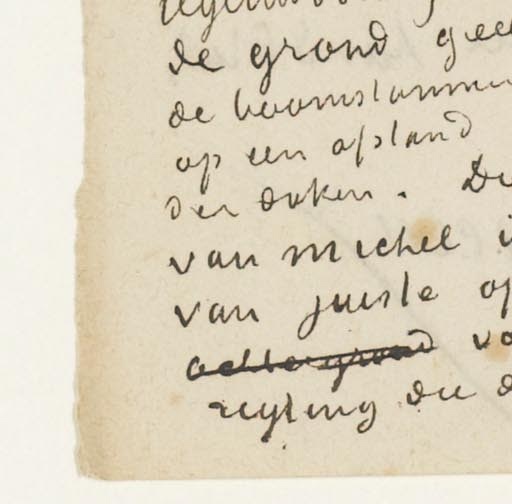 de grond geee
de boomstammen
op een afstand
der eiken. De
van michel i
van juiste op
achtergrond vo
die